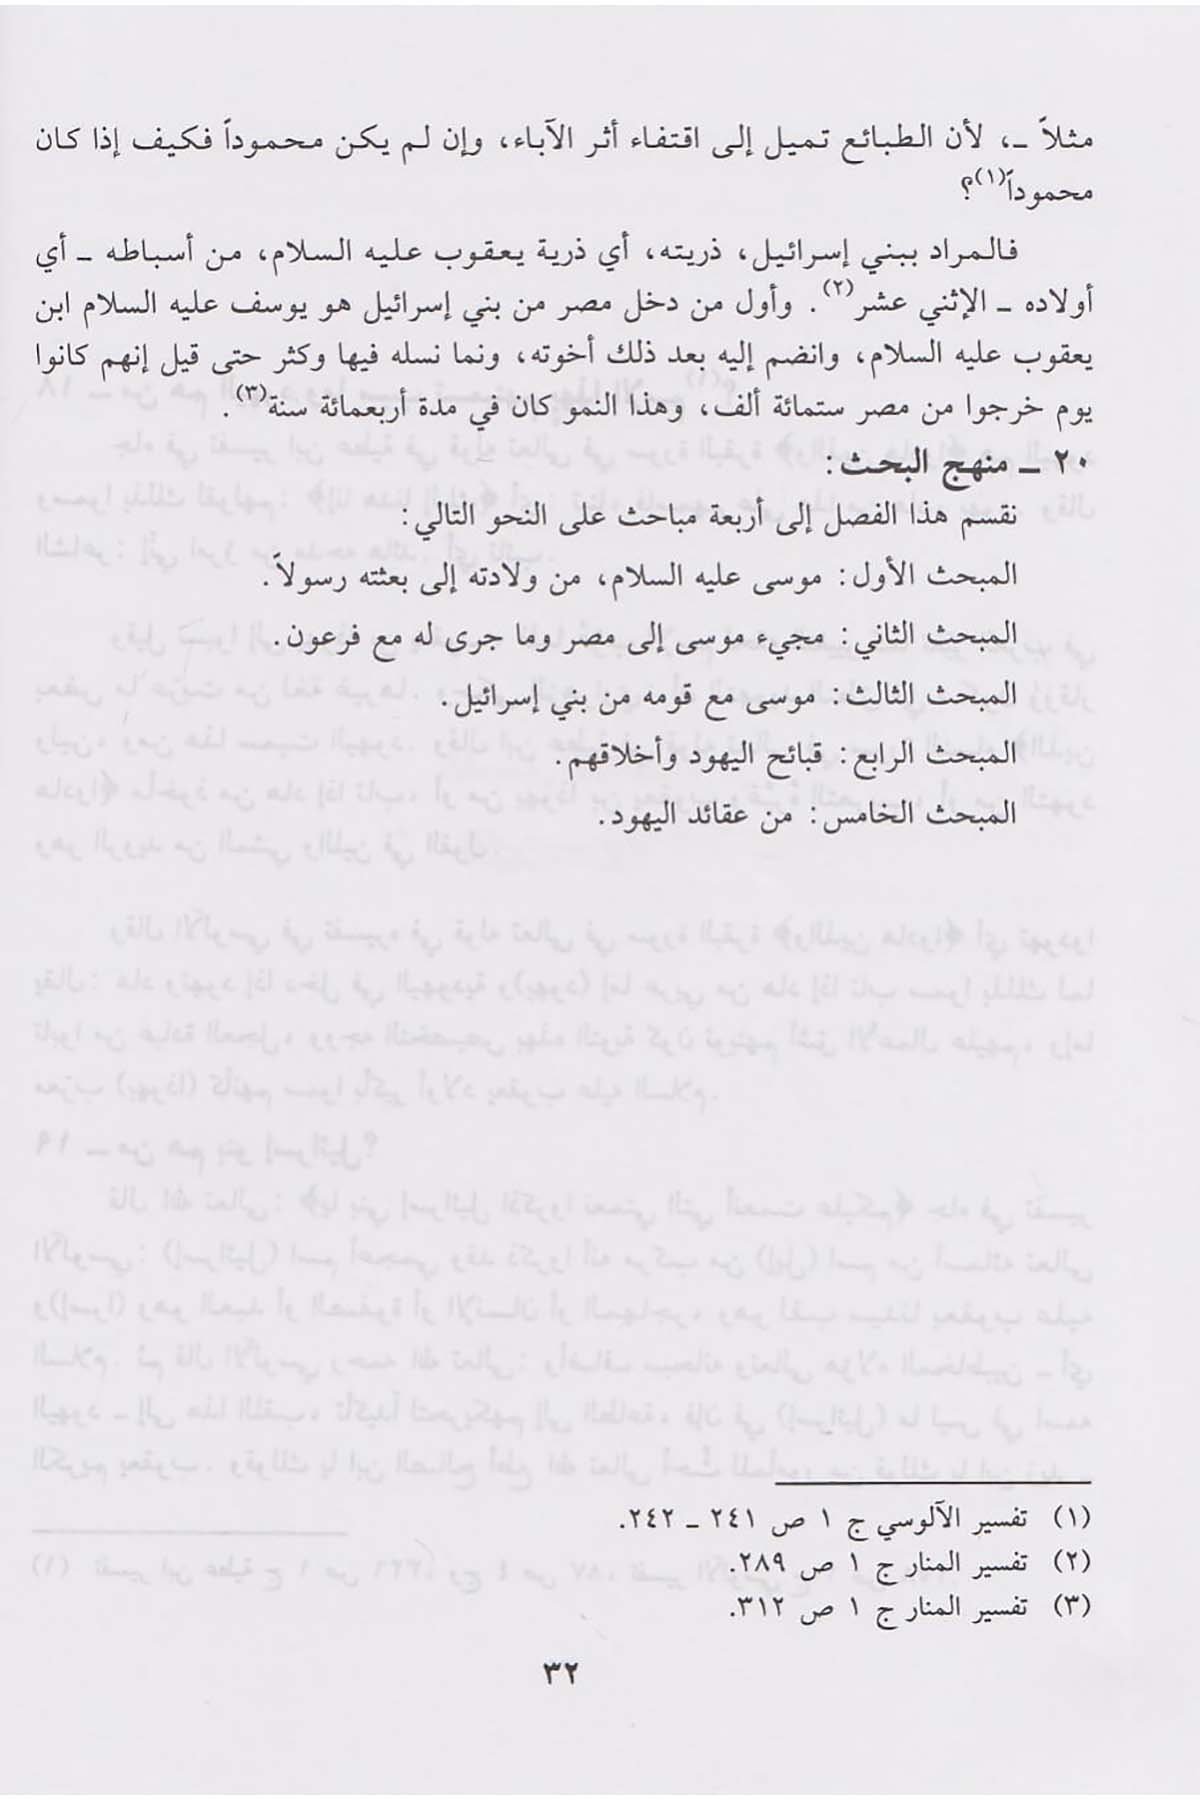 مثلاً ـ، لأن الطبائع تميل إلى اقتفاء أثر الآباء، وإن لم يكن محموداً فكيف إذا كان
محموداً(١)؟
فالمراد ببني إسرائيل، ذريته، أي ذرية يعقوب عليه السلام، من أسباطه ـ أي
أولاده ـ الإثني عشر(٢). وأول من دخل مصر من بني إسرائيل هو يوسف عليه السلام ابن
يعقوب عليه السلام، وانضم إليه بعد ذلك أخوته، ونما نسله فيها وكثر حتى قيل إنهم كانوا
يوم خرجوا من مصر ستمائة ألف، وهذا النمو كان في مدة أربعمائة سنة(٣).
٢٠ ـ منهج البحث:
نقسم هذا الفصل إلى أربعة مباحث على النحو التالي:
المبحث الأول: موسى عليه السلام، من ولادته إلى بعثته رسولاً.
المبحث الثاني: مجيء موسى إلى مصر وما جرى له مع فرعون.
المبحث الثالث: موسى مع قومه من بني إسرائيل.
المبحث الرابع: قبائح اليهود وأخلاقهم.
المبحث الخامس: من عقائد اليهود.
(١) تفسير الآلوسي ج ١ ص ٢٤١ ـ ٢٤٢.
(٢) تفسير المنار ج ١ ص ٢٨٩.
(٣) تفسير المنار ج ١ ص ٣١٢.
٣٢